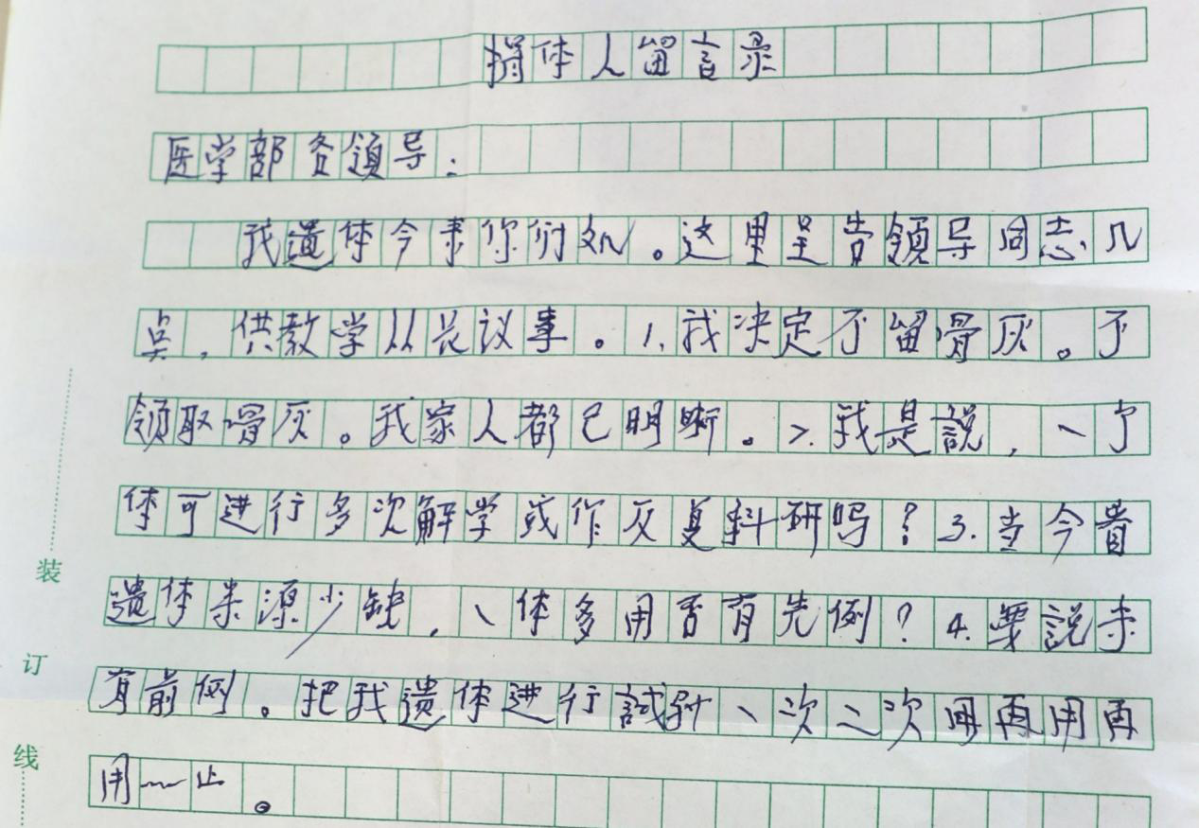 捐体人留言录
医学部各领导：
我遗体今来你们处。这里呈告领导同志几
点，供教学从长议事。1.我决定不留骨灰。不
领取骨灰。我家人都已明晰。2.我是説，一个
体可进行多次解学或作反复科研吗？3.当今贵
遗体来源少缺，一体多用否有先例？4.要説未
有前例。把我遗体进行試験一次二次用再用再
用～止。
装
订
线